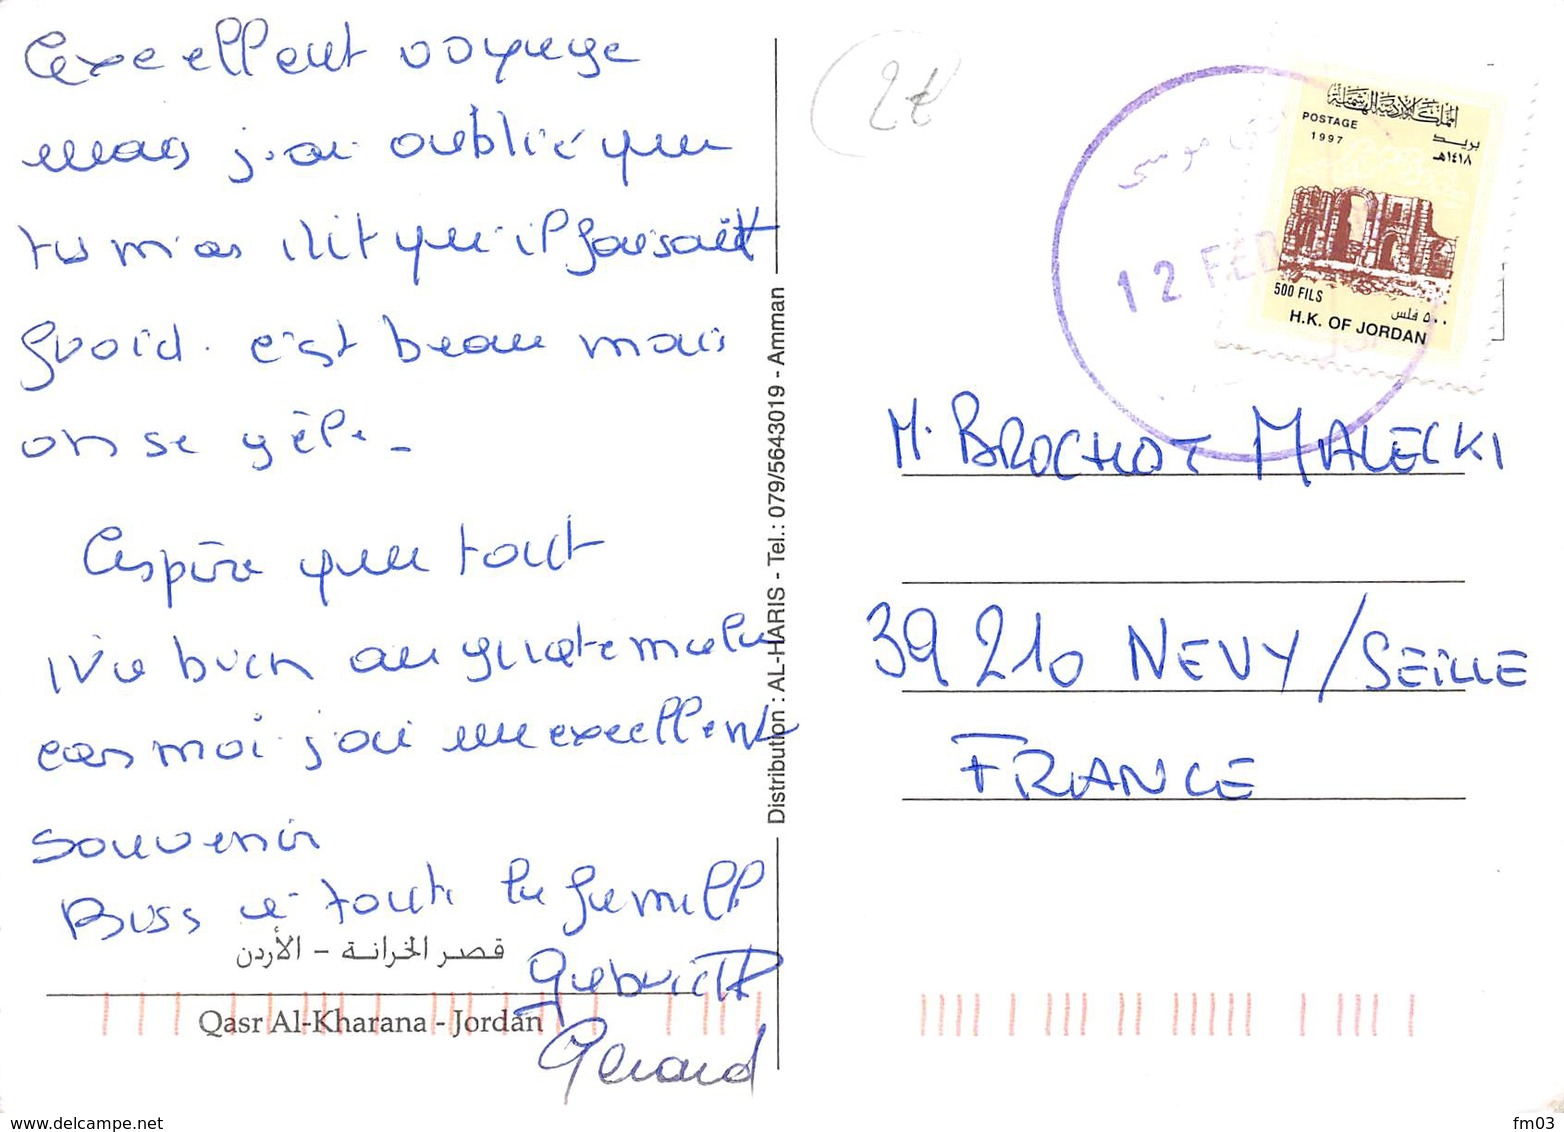 Excellent voyage
mais j'ai oublié que
tu m'as dit qu'il faisait
froid. c'est beau mais
on se gèle -
Espère que tout
va bien au guatemala
car moi j'ai un excellent
souvenir
Bises à toute la famille
Gabrielle
Gérard
قصر الخرانة - الأردن
Qasr Al-Kharana - Jordan
Distribution : AL-HARIS - Tel.: 079/5643019 - Amman
2€
موسى
12 FEB
المملكة الأردنية الهاشمية
POSTAGE
1997
بريد
١٤١٨هـ
500 FILS
٥٠٠ فلس
H.K. OF JORDAN
M. BROCHOT MALECKI
39210 NEVY/SEILLE
FRANCE
www.delcampe.net
fm03